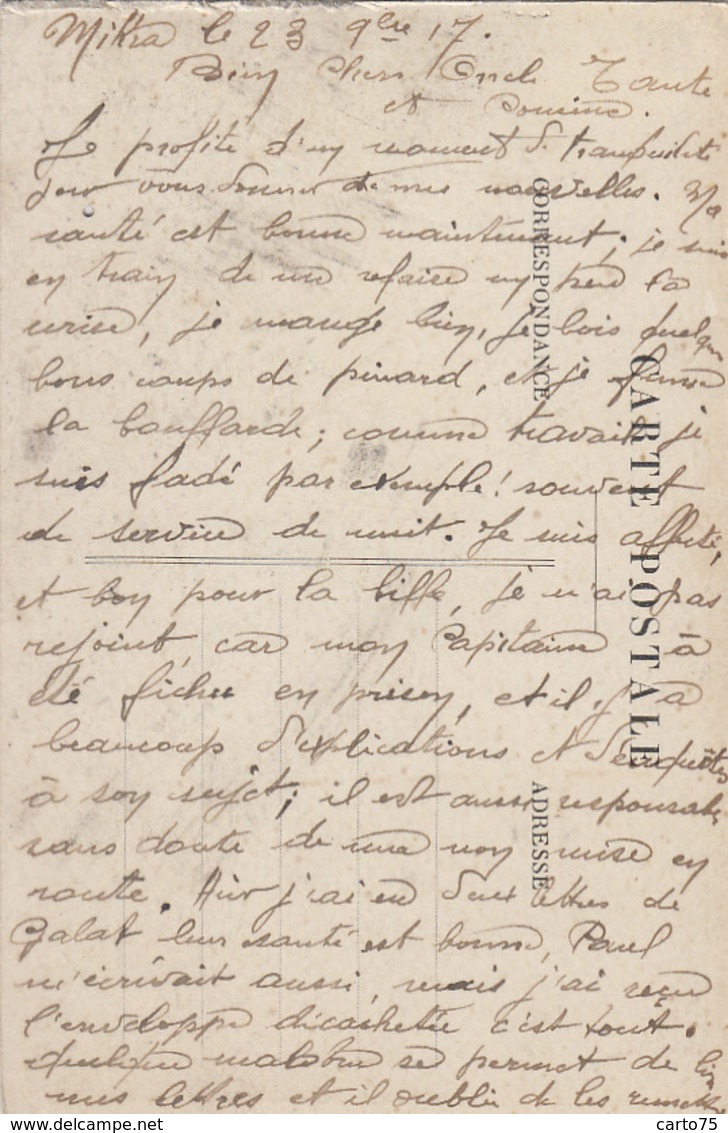 Mitra le 23 9bre 17.
Bien chers Oncle Tante
et Cousine.
Je profite d'un moment de tranquilité
pour vous donner de mes nouvelles. Ma
santé est bonne maintenant, je suis
en train de me refaire un peu la
cerise, je mange bien, je bois quelques
bons coups de pinard, et je fume
la bouffarde; comme travail je
suis fadé par exemple! souvent
de service de nuit. Je suis affuté,
et bon pour la biffe, je n'ai pas
rejoint, car mon Capitaine à
été fichu en prison, et il y a
beaucoup d'explications et d'enquêtes
à son sujet; il est aussi responsable
sans doute de ma non mise en
route. Hier j'ai eu deux lettres de
Galat leur santé est bonne, Paul
m'écrivait aussi, mais j'ai reçu
l'enveloppe décachetée c'est tout.
quelque malotru se permet de lire
mes lettres et il oublie de les remettre
CARTE POSTALE
CORRESPONDANCE
ADRESSE
carto75